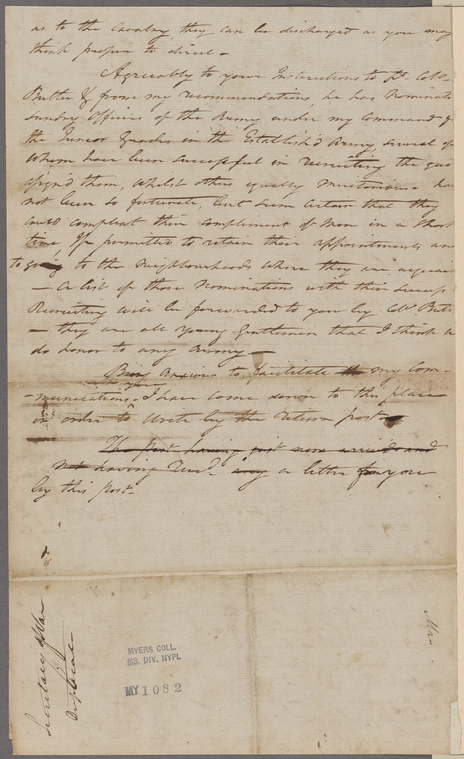 as to the Cavalry they can be discharged as you may
think proper to direct –
Agreeably to your Instructions to Lt. Colo.
Butler & from my recommendations, he has Nominate
sundry Officers of the Army under my Command
the Junior Grades in the Establish'd Army, several of
Whom have been successful in recruiting the
assign'd them, Whilst others equally Meritorious –
not been so fortunate, but seem certain that they
could compleat their compliment of Men in a Short
time if permitted to retain their appointments, an
to going to the Neighbourhoods where they are
– a list of those Nominations with their
Recruiting will be forwarded to you by Colo. Butl
– they are all Young Gentlemen that I think
do honor to any Army –
Being Anxious to facilitate the my Com-
-munications – I have come down to this place
in order to Write by the return post
The post having just now arrived and
not having Recd. any a letter from you
by this post –
Secretary of War
Mr
MYERS COLL.
MS. DIV. NYPL
MY 1082